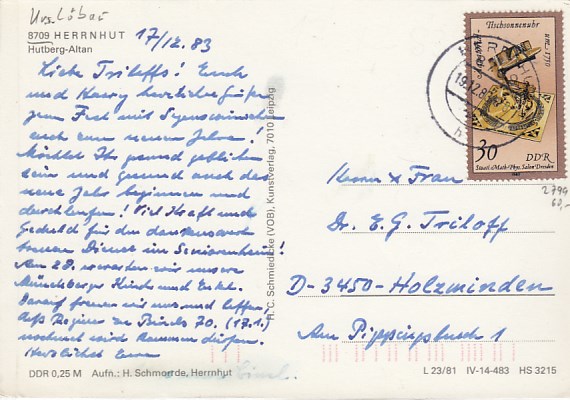 Krs. Löbau
8709 HERRNHUT
Hutberg-Altan
17/12. 83
Liebe Triloffs! Euch
und Harry herzliche Grüße
zum Fest mit Segenswünschen
auch zum neuen Jahre!
Möchtet Ihr gesund geblieben
sein und gesund auch das
neue Jahr beginnen und
durchlaufen! Viel Kraft und
Geduld für den dankenswert
treuen Dienst im Seniorenheim!
Am 28. erwarten wir unsere
Münchberger Kinder und Enkel.
Darauf freuen wir uns und hoffen,
daß Regina zu 70. (17.1.)
nochmal kommen dürfen.
Herzlichst Eure
DDR 0,25 M Aufn.: H. Schmorrde, Herrnhut
H. C. Schmiedicke (VOB), Kunstverlag, 7010 Leipzig
Tischsonnenuhr
um 1770
30 DDR
Staatl. Math.-Phys. Salon Dresden
19.12.8
2799
60,-
Herrn u Frau
Dr. E. G. Triloff
D-3450-Holzminden
Am Pippingsbusch 1
L 23/81 IV-14-483 HS 3215